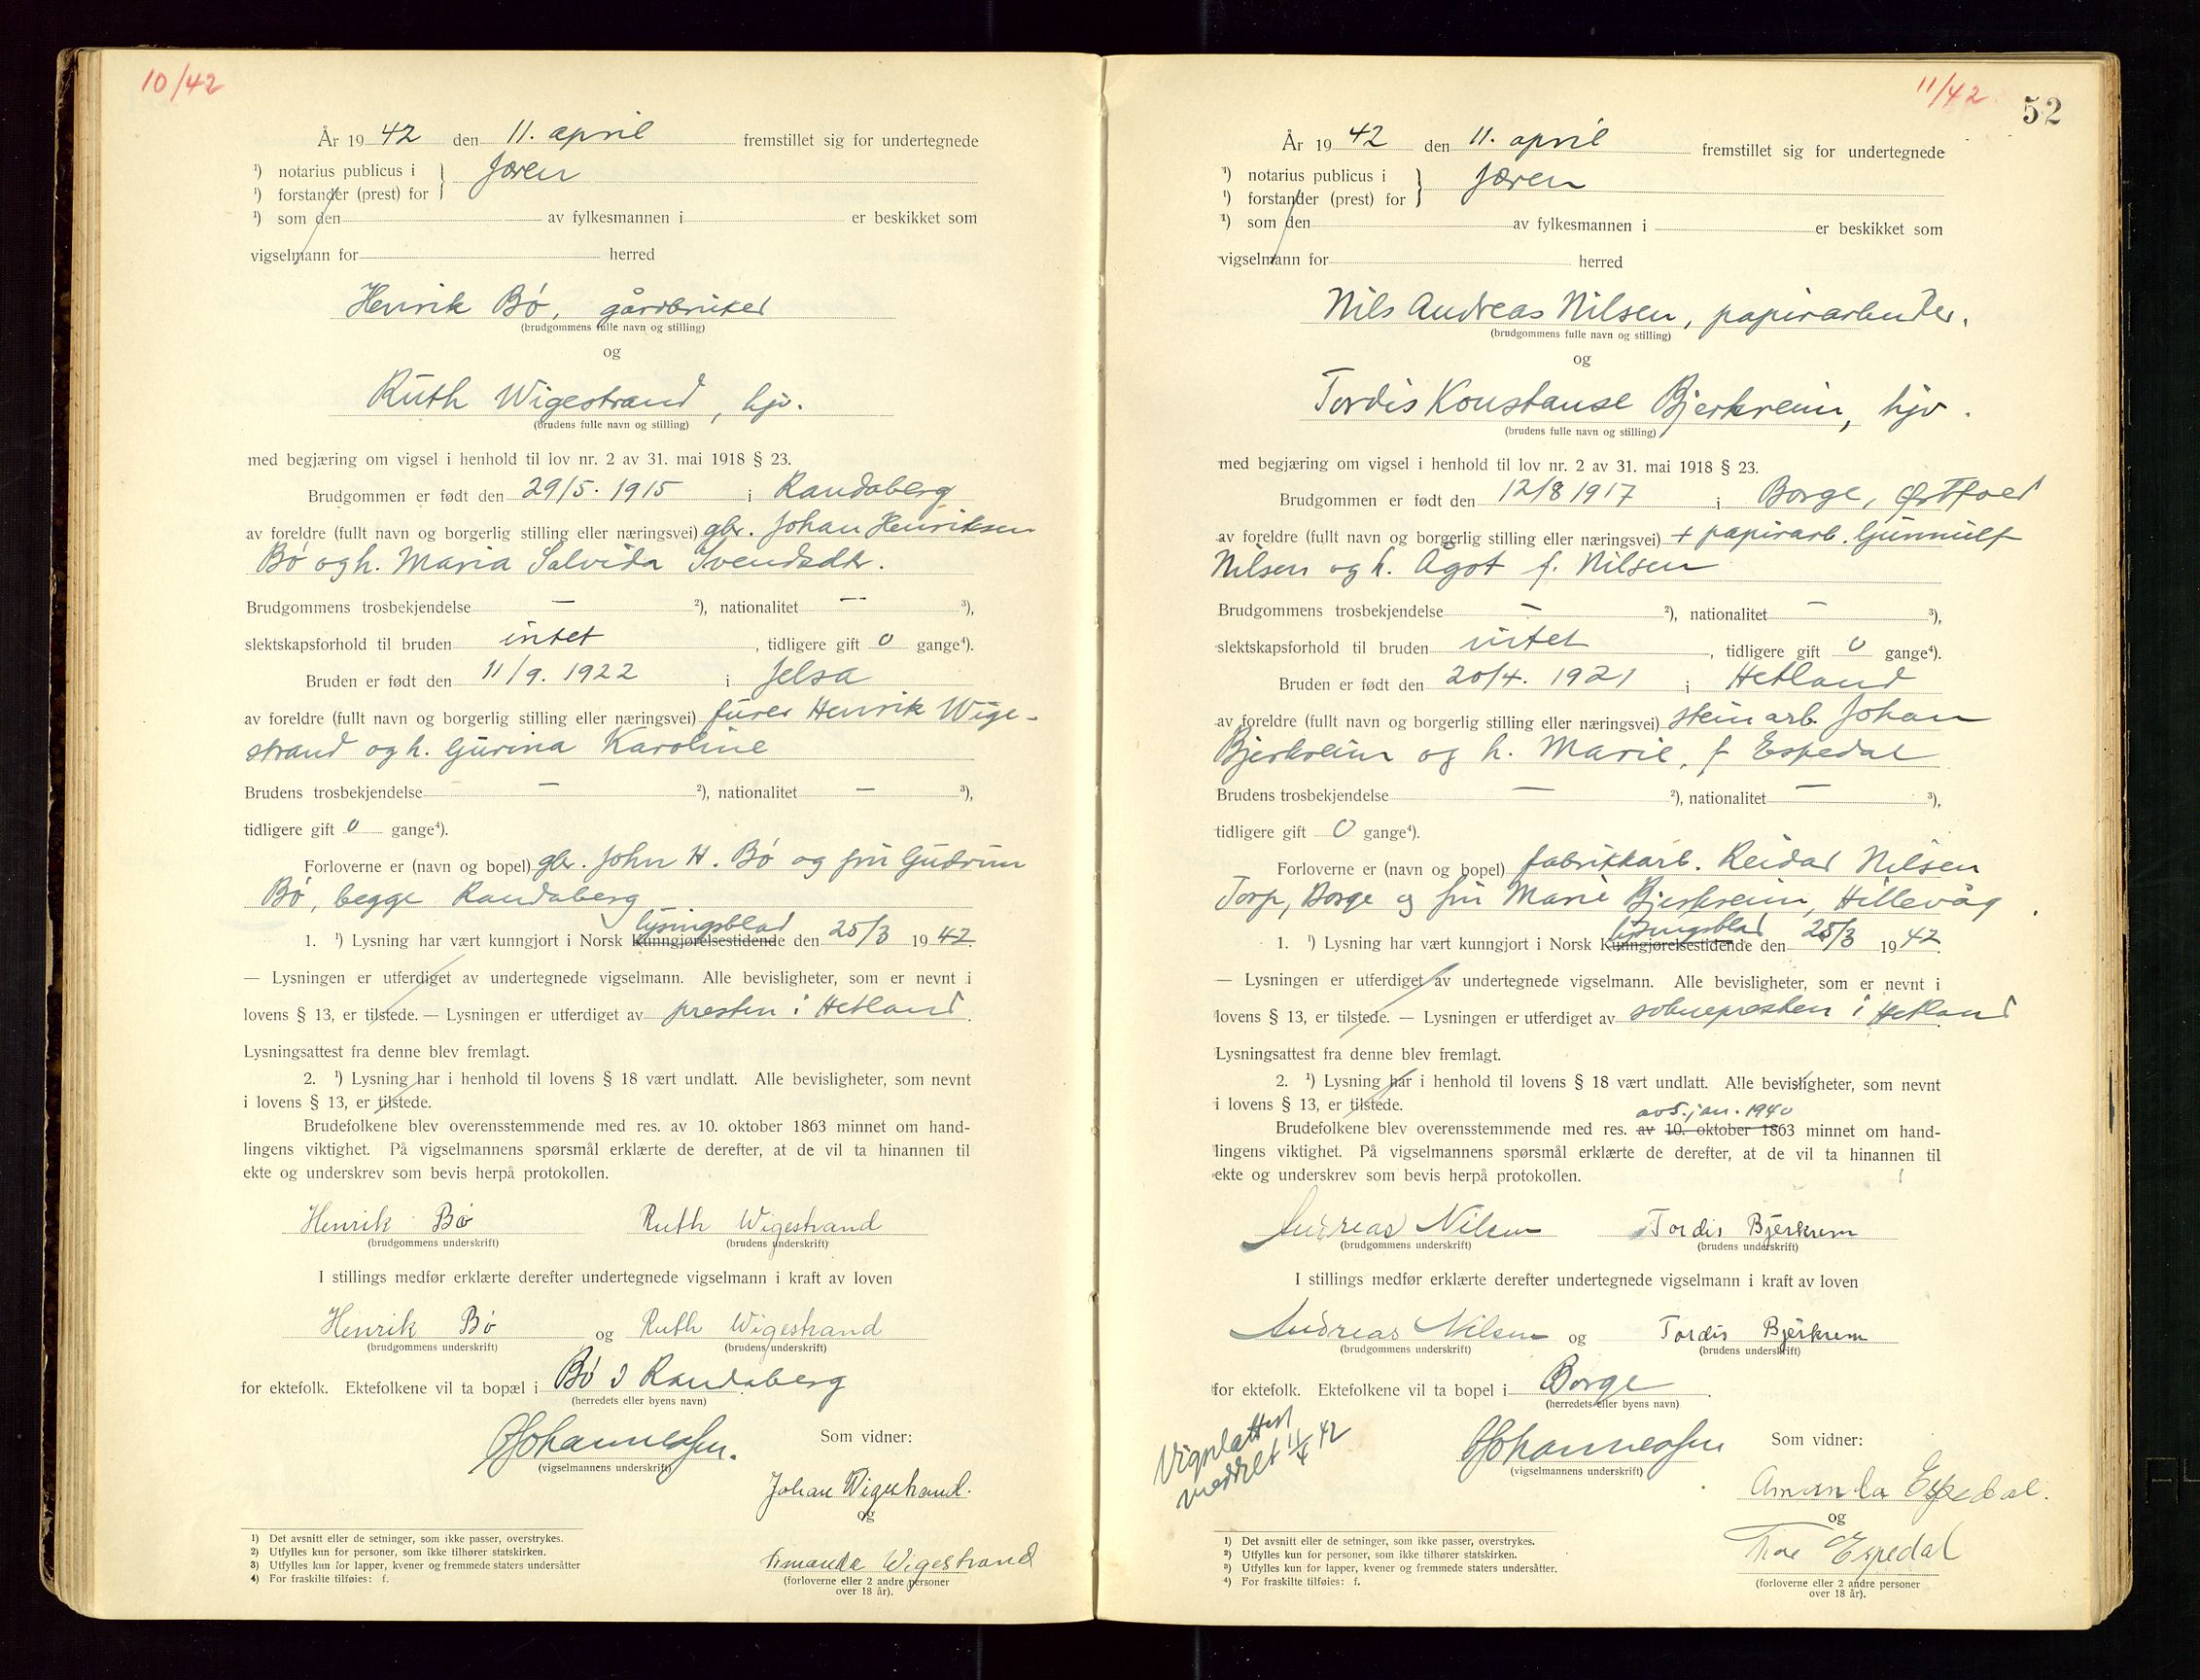 10/42
År 19 42 den 11. april fremstillet sig for undertegnede
¹) notarius publicus i } Jæren
¹) forstander (prest) for
¹) som den av fylkesmannen i er beskikket som
vigselmann for herred
Henrik Bø, gårdbruker
(brudgommens fulle navn og stilling)
og
Ruth Wigestrand, hjv.
(brudens fulle navn og stilling)
med begjæring om vigsel i henhold til lov nr. 2 av 31. mai 1918 § 23.
Brudgommen er født den 29/5. 1915 i Randaberg
av foreldre (fullt navn og borgerlig stilling eller næringsvei) gbr. Johan Henriksen
Bø og h. Maria Salvida Svendsdtr.
Brudgommens trosbekjendelse — ²), nationalitet — ³),
slektskapsforhold til bruden intet, tidligere gift 0 gange⁴).
Bruden er født den 11/9. 1922 i Jelsa
av foreldre (fullt navn og borgerlig stilling eller næringsvei) furer Henrik Wige-
strand og h. Gurina Karoline
Brudens trosbekjendelse — ²), nationalitet — ³),
tidligere gift 0 gange⁴).
Forloverne er (navn og bopel) gbr. John H. Bø og fru Gudrun
Bø, begge Randaberg
lysingsblad
1. ¹) Lysning har vært kunngjort i Norsk Kunngjørelsestidende den 25/3 19 42.
— Lysningen er utferdiget av undertegnede vigselmann. Alle bevisligheter, som er nevnt i
lovens § 13, er tilstede. — Lysningen er utferdiget av presten i Hetland.
Lysningsattest fra denne blev fremlagt.
2. ¹) Lysning har i henhold til lovens § 18 vært undlatt. Alle bevisligheter, som nevnt
i lovens § 13, er tilstede.
Brudefolkene blev overensstemmende med res. av 10. oktober 1863 minnet om hand-
lingens viktighet. På vigselmannens spørsmål erklærte de derefter, at de vil ta hinannen til
ekte og underskrev som bevis herpå protokollen.
Henrik Bø Ruth Wigestrand
(brudgommens underskrift) (brudens underskrift)
I stillings medfør erklærte derefter undertegnede vigselmann i kraft av loven
Henrik Bø og Ruth Wigestrand
(brudgommens underskrift) (brudens underskrift)
for ektefolk. Ektefolkene vil ta bopæl i Bø i Randaberg
(herredets eller byens navn)
Johannessen.
(vigselmannens underskrift)
Som vidner:
Johan Wigestrand.
og
Amanda Wigestrand
(forloverne eller 2 andre personer
over 18 år).
¹) Det avsnitt eller de setninger, som ikke passer, overstrykes.
²) Utfylles kun for personer, som ikke tilhører statskirken.
³) Utfylles kun for lapper, kvener og fremmede staters undersåtter
⁴) For fraskilte tilføies: f.
11/42
52
År 19 42 den 11. april fremstillet sig for undertegnede
¹) notarius publicus i } Jæren
¹) forstander (prest) for
¹) som den av fylkesmannen i er beskikket som
vigselmann for herred
Nils Andreas Nilsen, papirarbeider.
(brudgommens fulle navn og stilling)
og
Tordis Konstanse Bjerkreim, hjv.
(brudens fulle navn og stilling)
med begjæring om vigsel i henhold til lov nr. 2 av 31. mai 1918 § 23.
Brudgommen er født den 12/8 1917 i Borge, Østfold
av foreldre (fullt navn og borgerlig stilling eller næringsvei) + papirarb. Gunnulf
Nilsen og h. Ågot f. Nilsen
Brudgommens trosbekjendelse — ²), nationalitet — ³),
slektskapsforhold til bruden intet, tidligere gift 0 gange⁴).
Bruden er født den 20/4. 1921 i Hetland
av foreldre (fullt navn og borgerlig stilling eller næringsvei) steinarb. Johan
Bjerkreim og h. Marie, f Espedal
Brudens trosbekjendelse — ²), nationalitet — ³),
tidligere gift 0 gange⁴).
Forloverne er (navn og bopel) fabrikkarb. Reidar Nilsen
Torp, Borge og fru Marie Bjerkreim, Hillevåg.
lysingsblad
1. ¹) Lysning har vært kunngjort i Norsk Kunngjørelsestidende den 25/3 19 42
— Lysningen er utferdiget av undertegnede vigselmann. Alle bevisligheter, som er nevnt i
lovens § 13, er tilstede. — Lysningen er utferdiget av soknepresten i Hetland
Lysningsattest fra denne blev fremlagt.
2. ¹) Lysning har i henhold til lovens § 18 vært undlatt. Alle bevisligheter, som nevnt
i lovens § 13, er tilstede.
av 5. jan. 1940
Brudefolkene blev overensstemmende med res. av 10. oktober 1863 minnet om hand-
lingens viktighet. På vigselmannens spørsmål erklærte de derefter, at de vil ta hinannen til
ekte og underskrev som bevis herpå protokollen.
Andreas Nilsen Tordis Bjerkrem
(brudgommens underskrift) (brudens underskrift)
I stillings medfør erklærte derefter undertegnede vigselmann i kraft av loven
Andreas Nilsen og Tordis Bjerkrem
(brudgommens underskrift) (brudens underskrift)
for ektefolk. Ektefolkene vil ta bopel i Borge.
(herredets eller byens navn)
Vigslattest
meddelt 11/4 42
Johannessen
(vigselmannens underskrift)
Som vidner:
Amanda Espedal.
og
Thor Espedal
(forloverne eller 2 andre personer
over 18 år).
¹) Det avsnitt eller de setninger, som ikke passer, overstrykes.
²) Utfylles kun for personer, som ikke tilhører statskirken.
³) Utfylles kun for lapper, kvener og fremmede staters undersåtter.
⁴) For fraskilte tilføies: f.